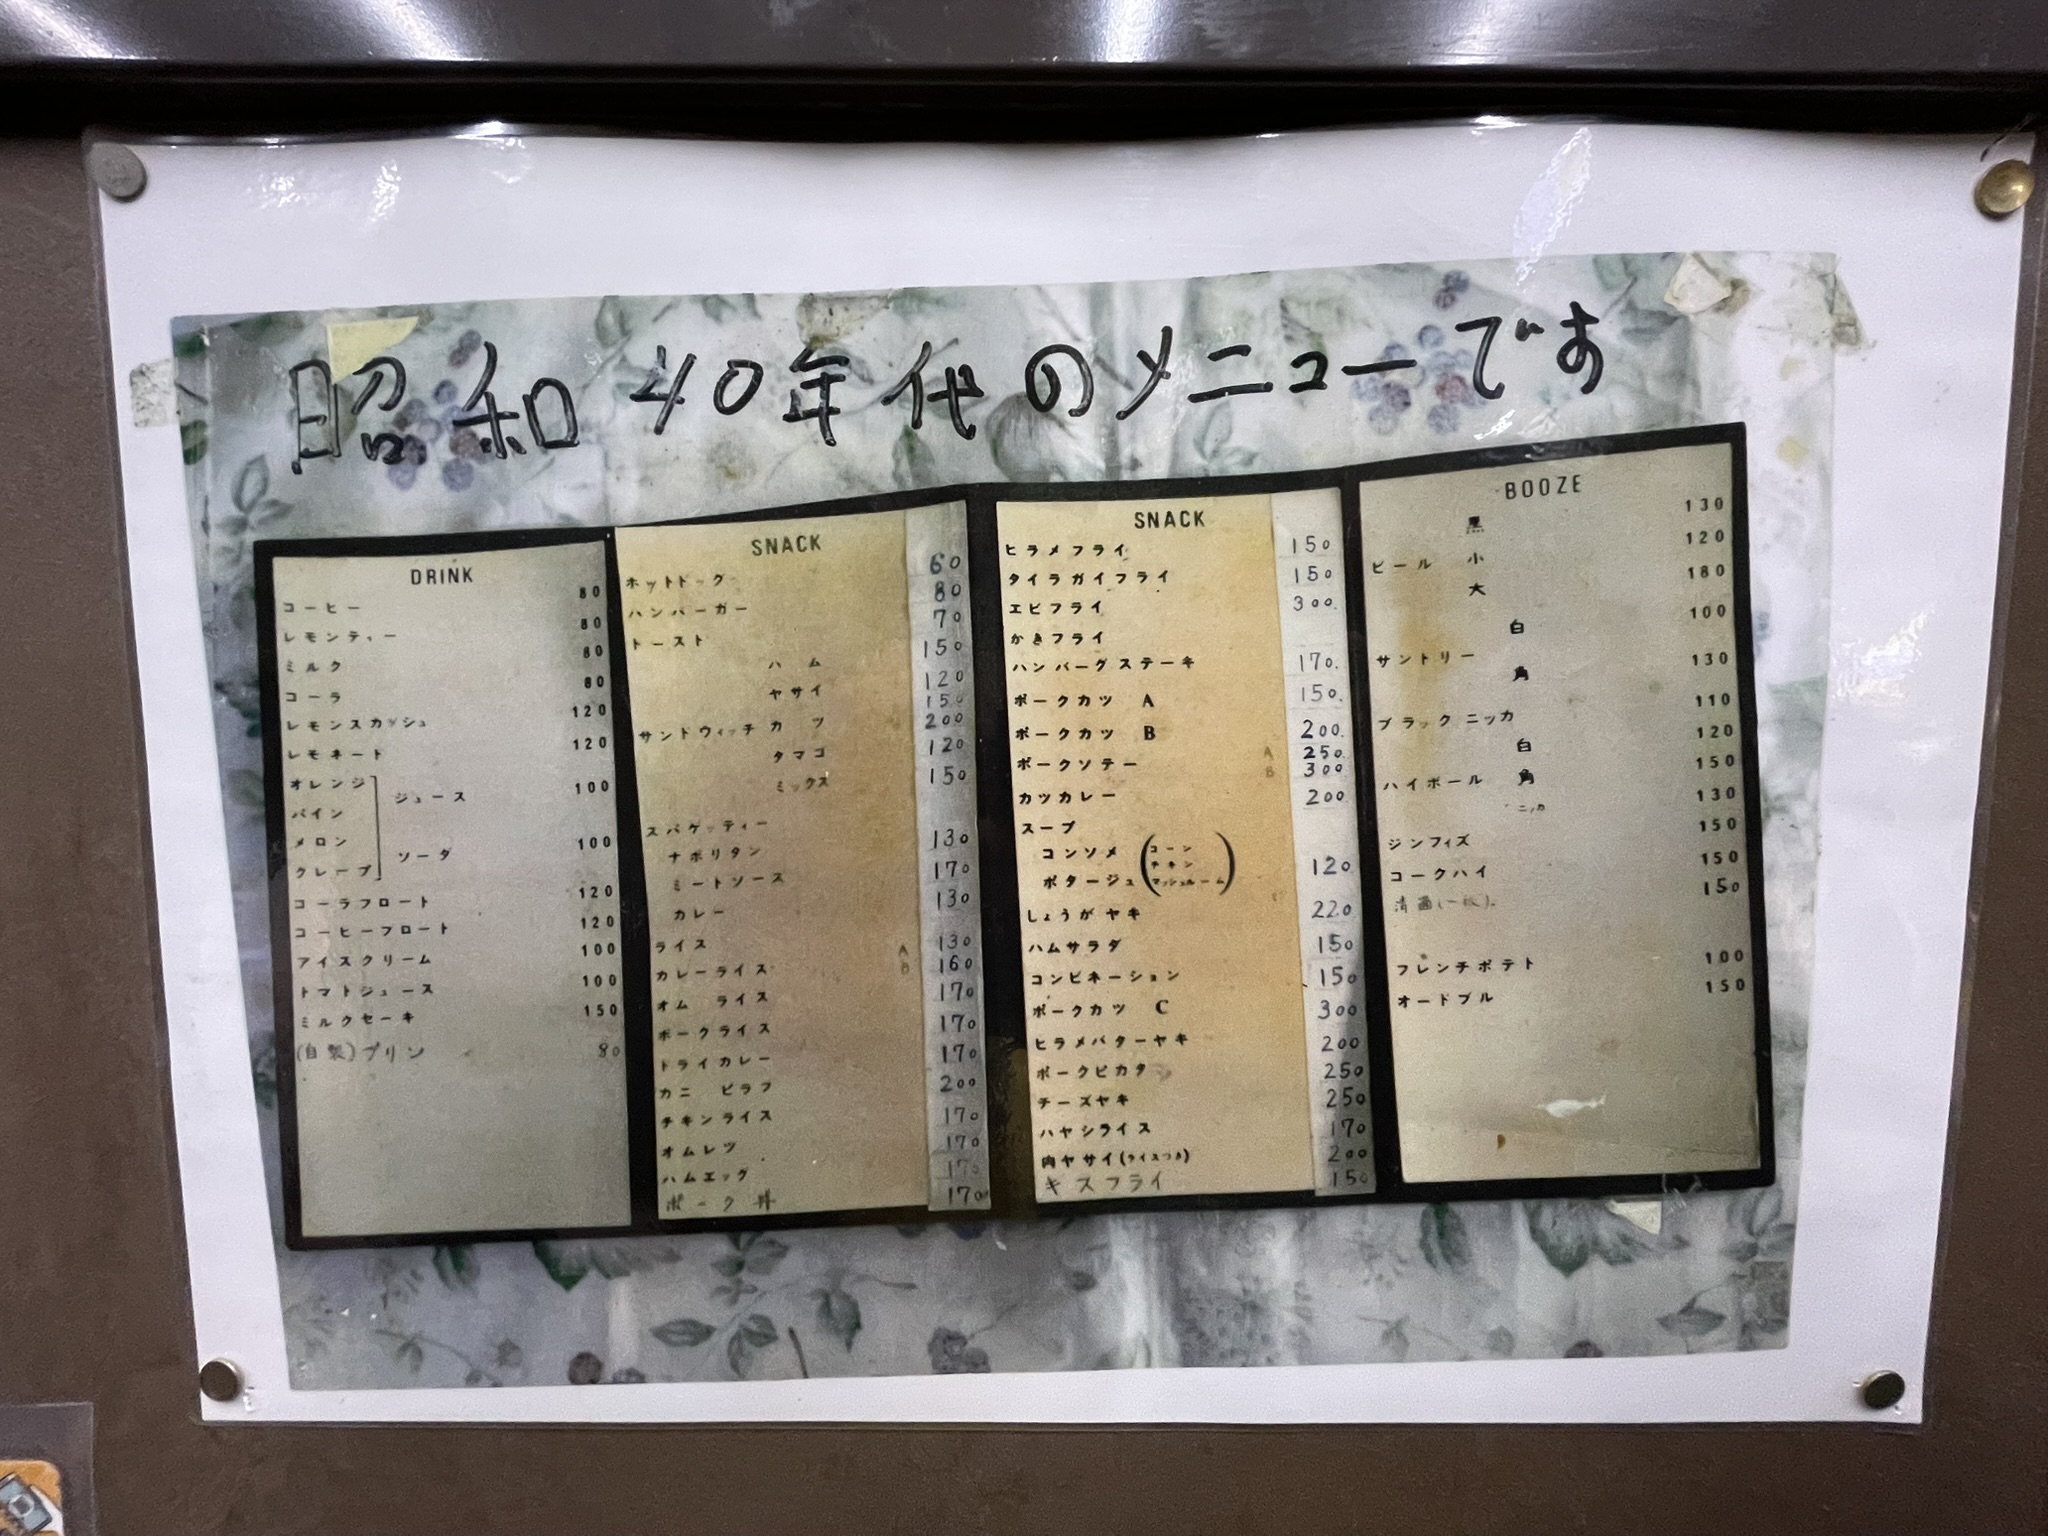 昭和40年代のメニューです
DRINK
コーヒー 80
レモンティー 80
ミルク 80
コーラ 80
レモンスカッシュ 120
レモネート 120
オレンジ
パイン
ジュース 100
メロン
グレープ
ソーダ 100
コーラフロート 120
コーヒーフロート 120
アイスクリーム 100
トマトジュース 100
ミルクセーキ 150
(自製)プリン 80
SNACK
ホットドッグ 60
ハンバーガー 80
トースト 70
ハム 150
ヤサイ 120
150
サンドウィッチ カツ 200
タマゴ 120
ミックス 150
スパゲッティー
ナポリタン 130
ミートソース 170
カレー 130
ライス
カレーライス A 130
B 160
オムライス 170
ポークライス 170
ドライカレー 170
カニ ピラフ 200
チキンライス 170
オムレツ 170
ハムエッグ 170
ポーク丼 170
SNACK
ヒラメフライ 150
タイラガイフライ 150
エビフライ 300.
かきフライ
ハンバーグステーキ 170.
ポークカツ A 150.
ポークカツ B 200.
ポークソテー A 250.
B 300
カツカレー 200
スープ
コンソメ
ポタージュ
(コーン
チキン
マッシュルーム) 120
しょうがヤキ 220
ハムサラダ 150
コンビネーション 150
ポークカツ C 300
ヒラメバターヤキ 200
ポークピカタ 250
チーズヤキ 250
ハヤシライス 170
肉ヤサイ(ライスつき) 200
キスフライ 150
BOOZE
黒 130
ビール 小 120
大 180
白 100
サントリー
角 130
ブラックニッカ 110
白 120
ハイボール 角 150
ニッカ 130
ジンフィズ 150
コークハイ 150
150
フレンチポテト 100
オードブル 150